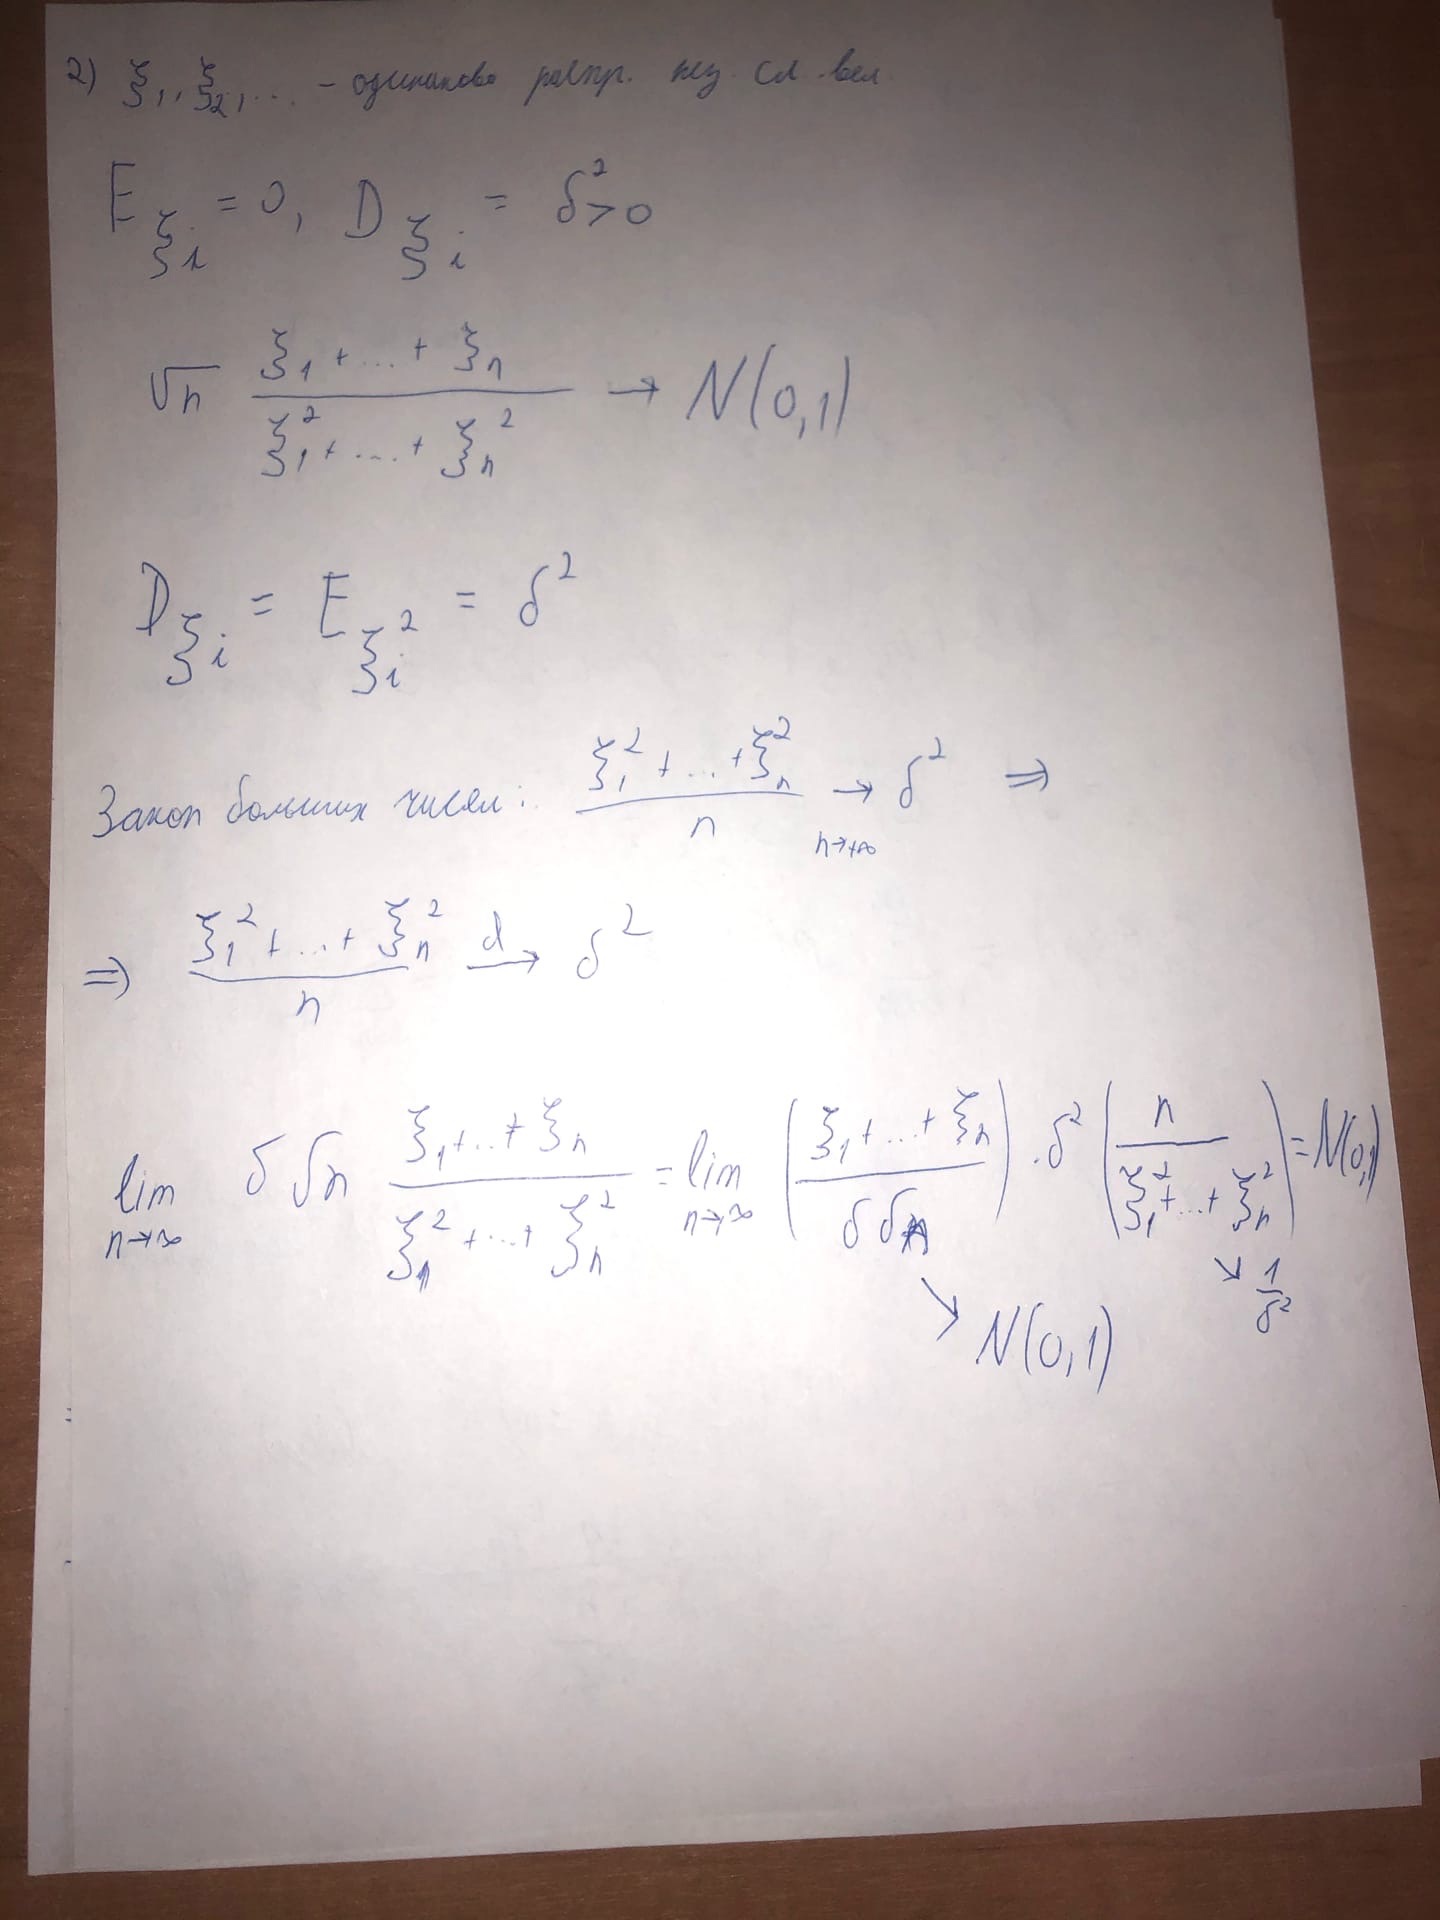 2) ξ₁, ξ₂, ... – одинаково распр. нез. сл. вел
Eξᵢ = 0, Dξᵢ = δ² > 0
√n (ξ₁ + ... + ξₙ) / (ξ₁² + ... + ξₙ²) → N(0,1)
Dξᵢ = Eξᵢ² = δ²
Закон больших чисел: (ξ₁² + ... + ξₙ²) / n → δ² ⇒
n→+∞
⇒ (ξ₁² + ... + ξₙ²) / n →ᵈ δ²
lim δ√n (ξ₁ + ... + ξₙ) / (ξ₁² + ... + ξₙ²) = lim ((ξ₁ + ... + ξₙ) / (δ√n)) · δ² (n / (ξ₁² + ... + ξₙ²)) = N(0,1)
n→∞ n→∞
↘ N(0,1) ↘ 1/δ²